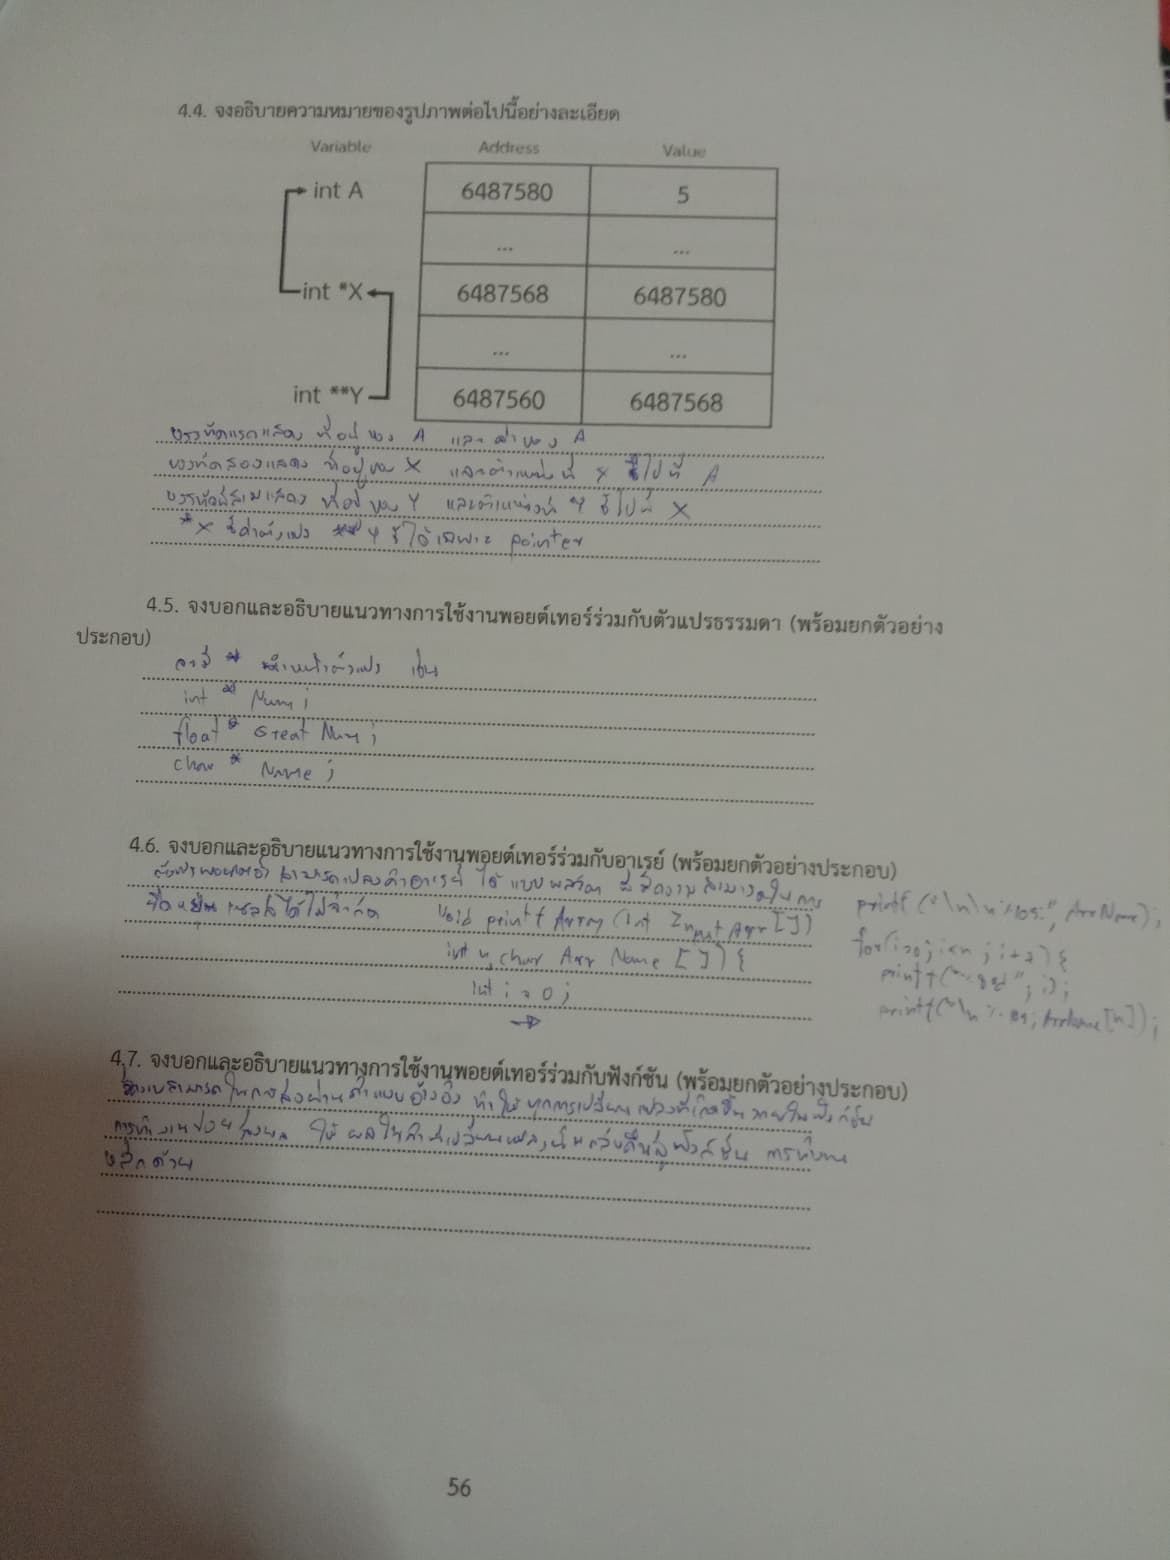 4.4. จงอธิบายความหมายของรูปภาพต่อไปนี้อย่างละเอียด
Variable Address Value
int A 6487580 5
... ...
int *X 6487568 6487580
... ...
int **Y 6487560 6487568
บรรทัดแรกแสดง ที่อยู่ของ A และค่าของ A
บรรทัดสองแสดง ที่อยู่ของ X และตำแหน่งที่ X ชี้ไปที่ A
บรรทัดที่สามแสดง ที่อยู่ของ Y และตำแหน่งที่ Y ชี้ไปที่ X
*X ชี้ค่าตัวแปร **Y ชี้ได้เฉพาะ pointer
4.5. จงบอกและอธิบายแนวทางการใช้งานพอยต์เทอร์ร่วมกับตัวแปรธรรมดา (พร้อมยกตัวอย่าง
ประกอบ)
จะมี * นำหน้าตัวแปร เช่น
int * Num;
float * Great Num;
char * Name;
4.6. จงบอกและอธิบายแนวทางการใช้งานพอยต์เทอร์ร่วมกับอาเรย์ (พร้อมยกตัวอย่างประกอบ)
สามารถแปลงค่าอาเรย์ ได้ แบบพลวัต ซึ่งมีความสามารถในการ
ยืดหยุ่น ได้ไม่จำกัด void printf Array (int Input Arr [])
int n, char Arr Name [ ]) {
int i = 0;
for(i=0; i<n; i++) {
4.7. จงบอกและอธิบายแนวทางการใช้งานพอยต์เทอร์ร่วมกับฟังก์ชัน (พร้อมยกตัวอย่างประกอบ)
ในการส่งผ่านค่าแบบอ้างอิง ทำให้ทุกการเปลี่ยนแปลงที่เกิดขึ้นภายในฟังก์ชัน
การทำงานย่อย ส่งผล ให้ กลับคืนสู่ฟังก์ชัน การทำงาน
หลักด้วย
56